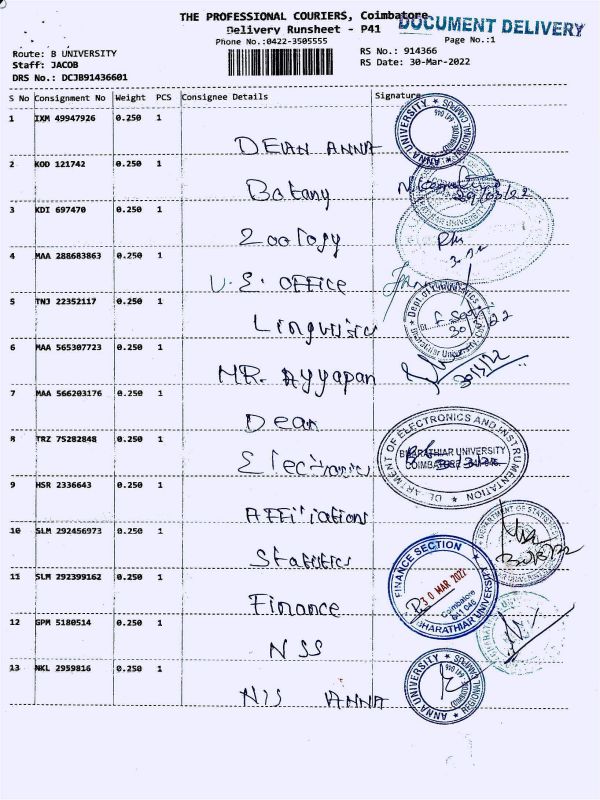 THE PROFESSIONAL COURIERS, Coimbatore
DOCUMENT DELIVERY
Delivery Runsheet - P41
Phone No.:0422-3505555
Page No.:1
Route: B UNIVERSITY
RS No.: 914366
Staff: JACOB
RS Date: 30-Mar-2022
DRS No.: DCJB91436601
S No Consignment No Weight PCS Consignee Details Signature
1 IXM 49947926 0.250 1
DEAN ANNA
ANNA UNIVERSITY REGIONAL CAMPUS
2 KOD 121742 0.250 1
Botany
29/03/22
3 KDI 697470 0.250 1
Zoology
4 MAA 288683863 0.250 1
U.S. OFFICE
5 TNJ 22352117 0.250 1
Linguistics
Dept of Linguistics
Bharathiar University
6 MAA 565307723 0.250 1
MR. Ayyapan
30/3/22
7 MAA 566203176 0.250 1
Dean
8 TRZ 75282848 0.250 1
Electronics
DEPARTMENT OF ELECTRONICS AND INSTRUMENTATION
BHARATHIAR UNIVERSITY
COIMBATORE - 641 046.
9 HSR 2336643 0.250 1
Affiliations
10 SLM 292456973 0.250 1
Statistics
DEPARTMENT OF STATISTICS
11 SLM 292399162 0.250 1
Finance
FINANCE SECTION
30 MAR 2022
Coimbatore
641 046
BHARATHIAR UNIVERSITY
12 GPM 5180514 0.250 1
NSS
13 NKL 2959816 0.250 1
NSS ANNA
ANNA UNIVERSITY REGIONAL CAMPUS